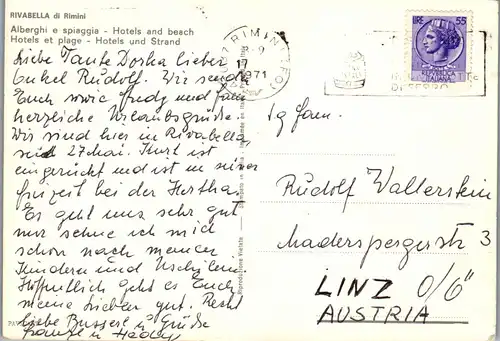 RIVABELLA di Rimini
Alberghi e spiaggia - Hotels and beach
Hotels et plage - Hotels und Strand
Liebe Tante Doska lieber
Onkel Rudolf. Wir senden
Euch sowie Judy und
herzliche Urlaubsgrüße.
Wir sind hier in Rivabella
seid 27 Mai. Kurt ist
eingerückt und ist in seiner
freizeit bei der Hertha.
Es geht uns sehr gut
nur sehne ich mich
schon nach meinen
Kindern und
Hoffentlich geht es Euch
meine Lieben gut. Recht
liebe Busserl u Grüße
u Hedy
RIMINI
17
1971
LIRE 55
Riproduzione Vietata
Fam.
Rudolf Wallerstein
Maderspergerstr 3
LINZ O/Ö
AUSTRIA